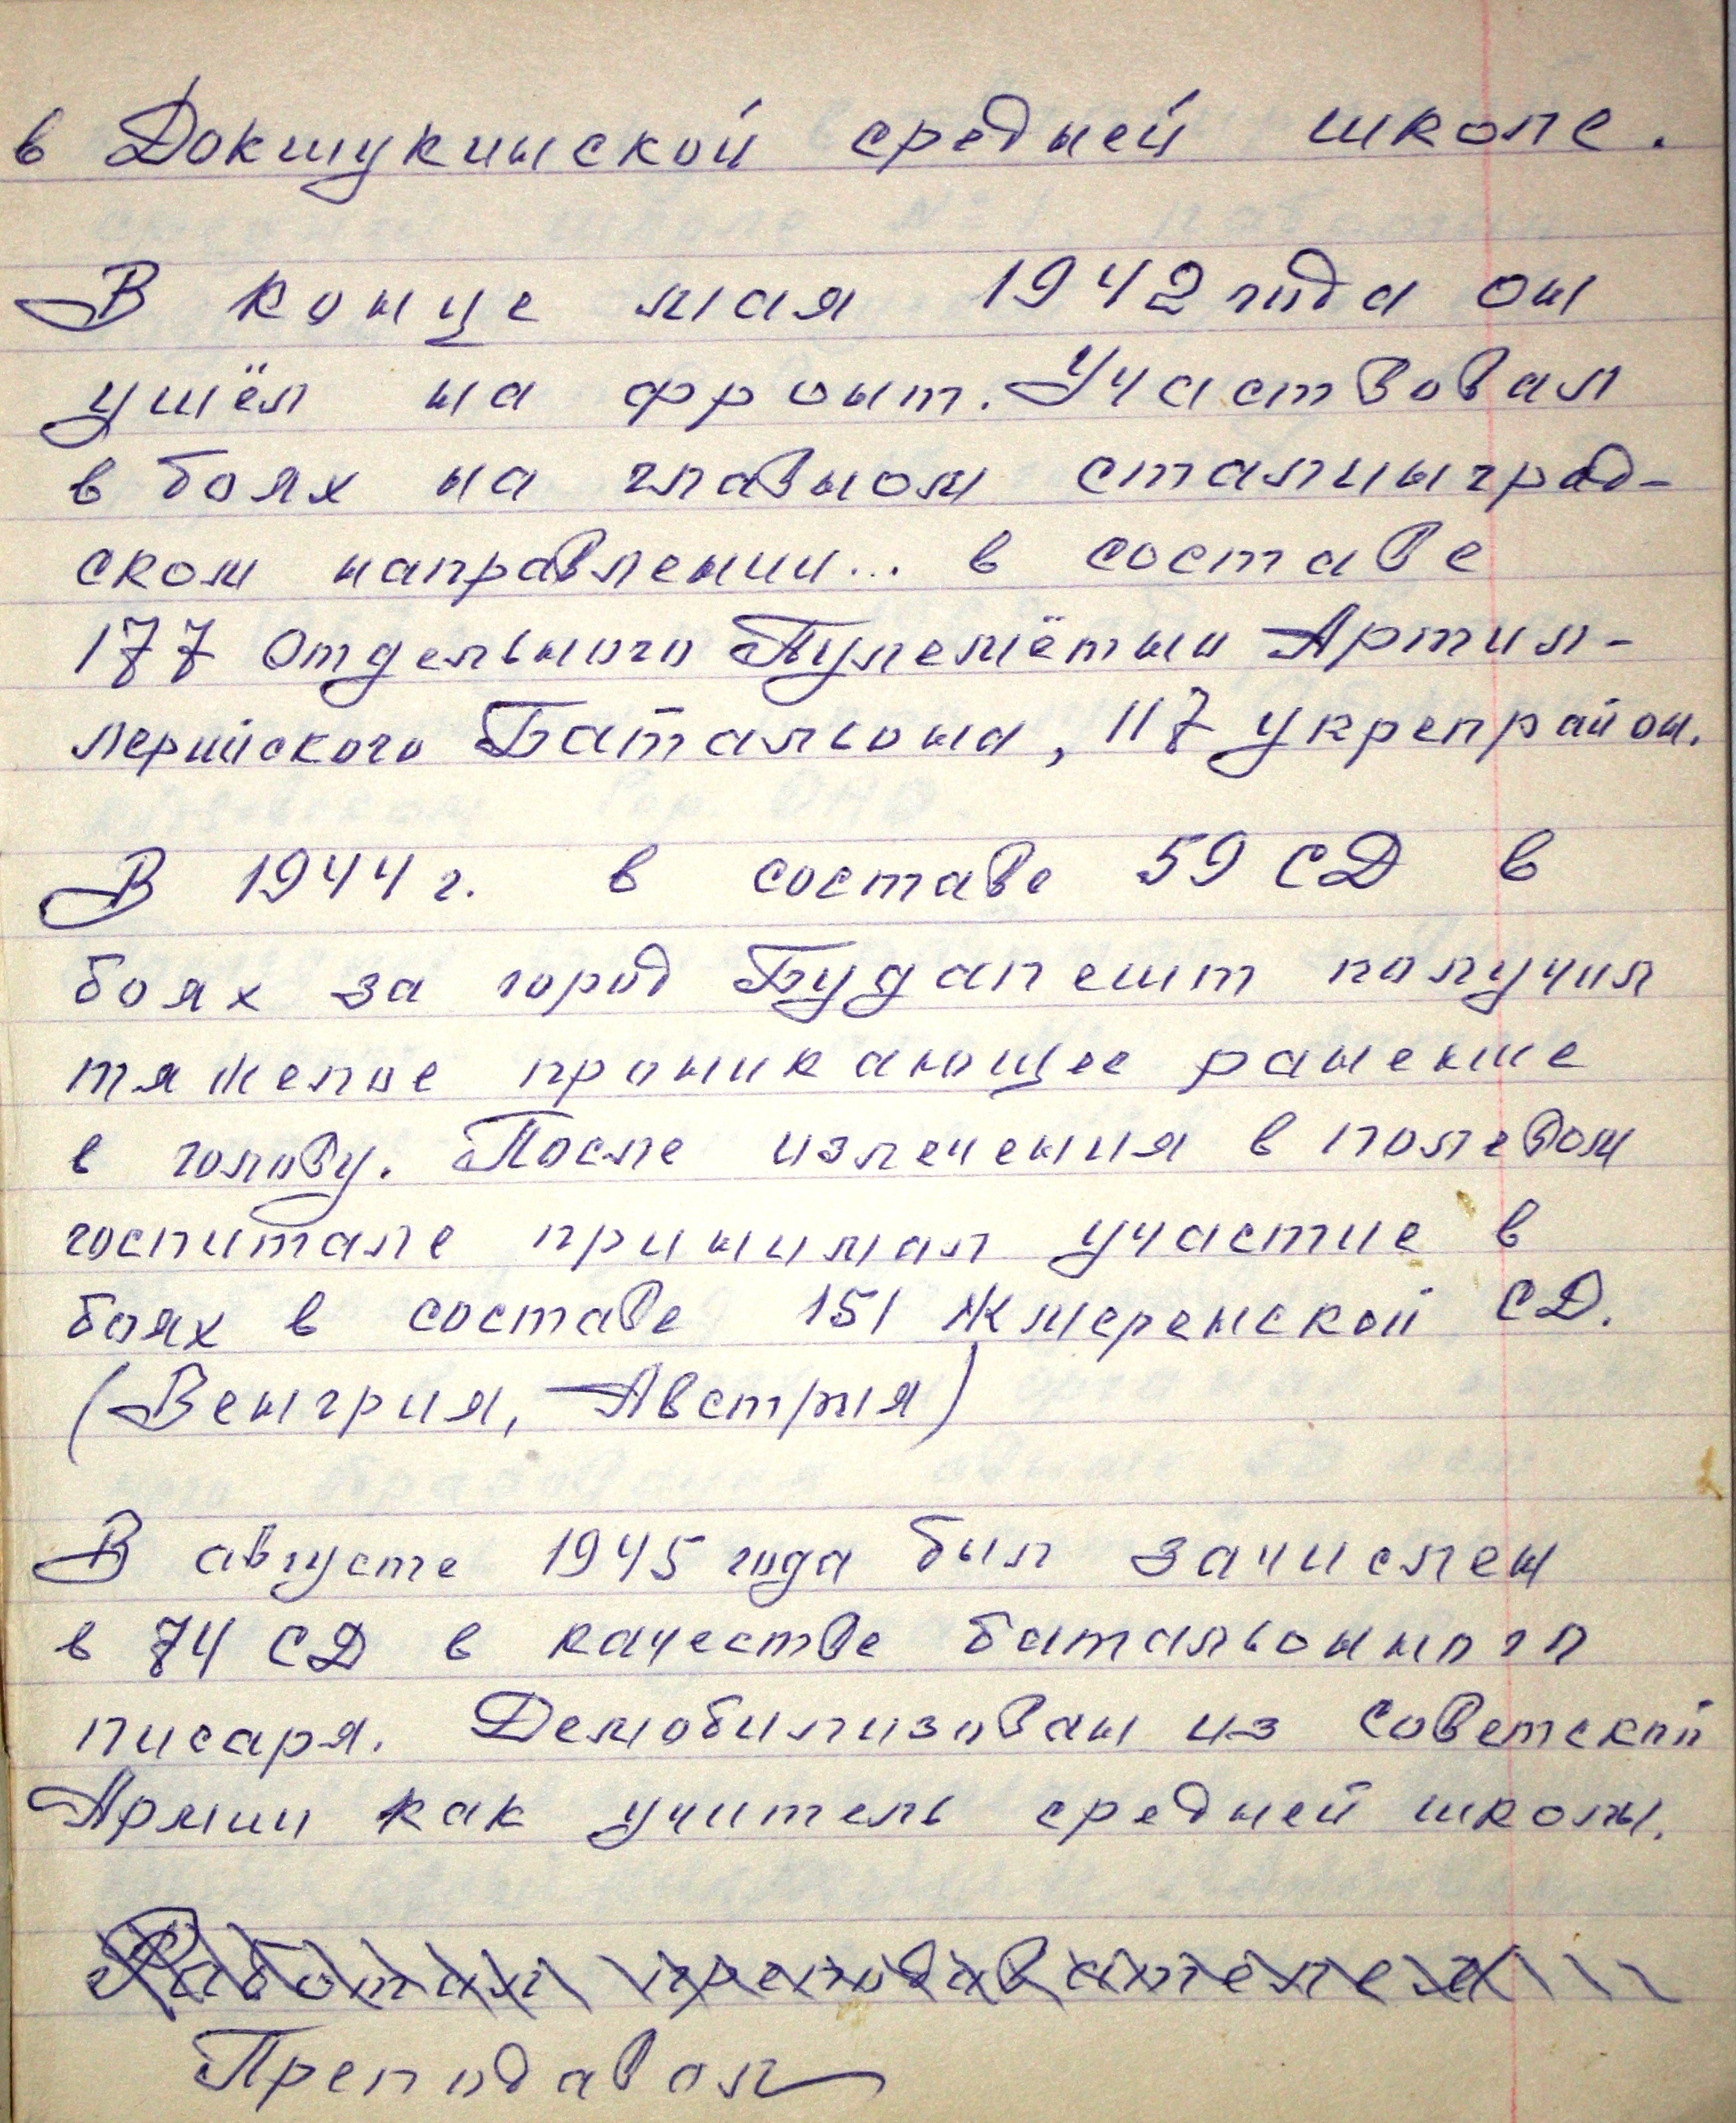 в Докшукинской средней школе.
В конце мая 1942 года он
ушёл на фронт. Участвовал
в боях на главном сталинград-
ском направлении... в составе
177 Отдельного Пулемётно Артил-
лерийского Батальона, 117 укрепрайон.
В 1944 г. в составе 59 СД в
боях за город Будапешт получил
тяжелое проникающее ранение
в голову. После излечения в полевом
госпитале принимал участие в
боях в составе 151 Жмеренской СД.
(Венгрия, Австрия)
В августе 1945 года был зачислен
в 74 СД в качестве батальонного
писаря. Демобилизован из Советской
Армии как учитель средней школы.
Работал преподавателем
Преподавал